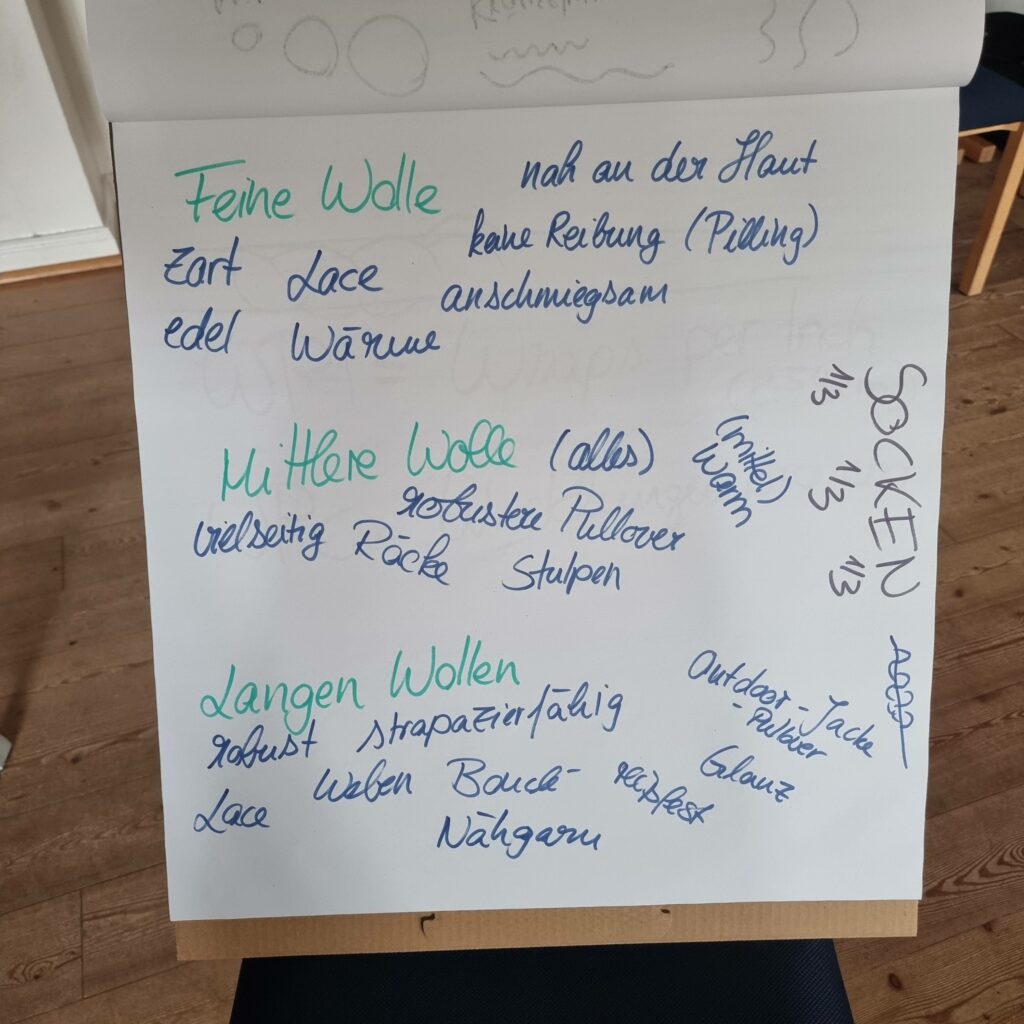 Feine Wolle
nah an der Haut
keine Reibung (Pilling)
zart Lace
anschmiegsam
edel Wärme
Mittlere Wolle (alles)
(mittel)
warm
robustere Pullover
vielseitig Röcke Stulpen
SOCKEN
1/3 1/3 1/3
Langen Wollen
robust strapazierfähig
Outdoor-Jacke
-Pullover
Lace Weben Bouclé reißfest Glanz
Nähgarn